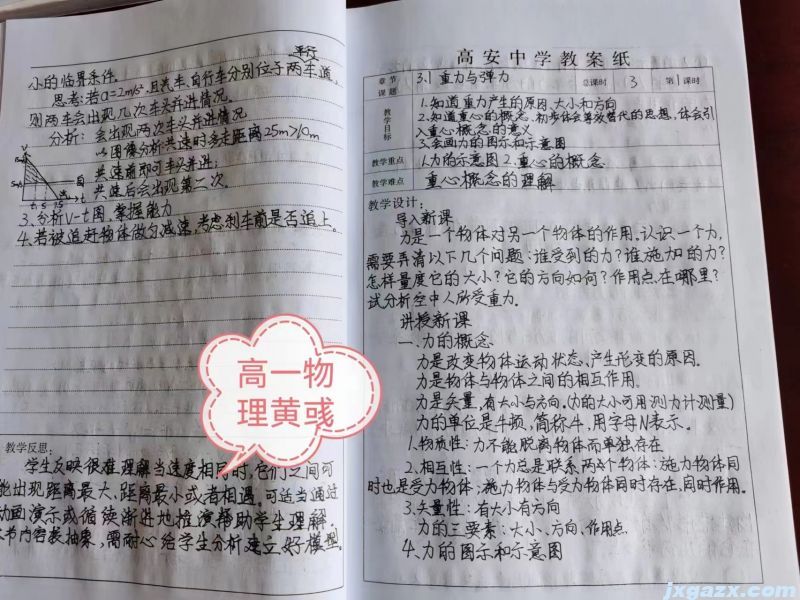 平行
小的临界条件。
思考:若a=2m/s²,且汽车、自行车分别位于两车道,
则两车会出现几次车头并进情况。
分析:会出现两次车头并进情况
以图像分析共速时多走距离25m>10m
共速前即可车头并进;
共速后会出现第二次。
3、分析v-t图,掌握能力
4、若被追赶物体做匀减速,考虑刹车前是否追上。
教学反思:
学生反映很难理解当速度相同时,它们之间可
能出现距离最大、距离最小或者相遇。可适当通过
动画演示或循续渐进地推演帮助学生理解。
本书内容表抽象,需耐心给学生分析建立好模型。
高一物
理黄彧
高安中学教案纸
章节
课题
3.1 重力与弹力
总课时
3
第1课时
教学目标
1.知道重力产生的原因、大小和方向
2.知道重心的概念,初步体会等效替代的思想,体会引
入重心概念的意义
3.会画力的图示和示意图
教学重点
1.力的示意图 2.重心的概念
教学难点
重心概念的理解
教学设计:
导入新课
力是一个物体对另一个物体的作用。认识一个力,
需要弄清以下几个问题:谁受到的力?谁施加的力?
怎样量度它的大小?它的方向如何?作用点在哪里?
试分析空中人所受重力。
讲授新课
一、力的概念
力是改变物体运动状态、产生形变的原因。
力是物体与物体之间的相互作用。
力是矢量,有大小与方向。(力的大小可用测力计测量)
力的单位是牛顿,简称牛,用字母N表示。
1.物质性:力不能脱离物体而单独存在
2.相互性:一个力总是联系两个物体:施力物体同
时也是受力物体;施力物体与受力物体同时存在,同时作用。
3.矢量性:有大小有方向
力的三要素:大小、方向、作用点
4.力的图示和示意图
jxgazx.com